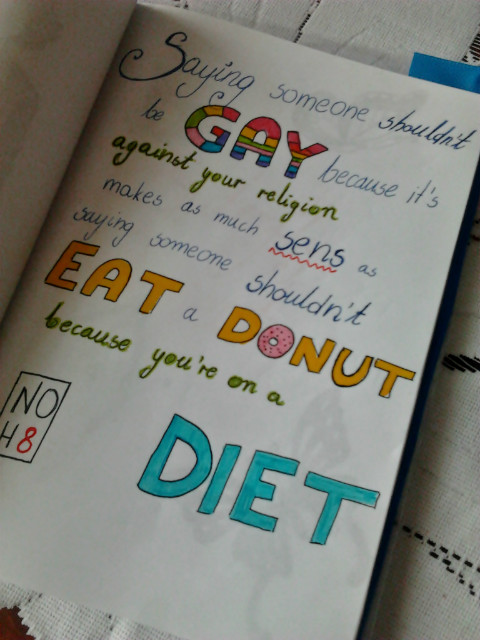 Saying someone shouldn't
be GAY because it's
against your religion
makes as much sens as
saying someone shouldn't
EAT a DONUT
because you're on a
DIET
NO
H8